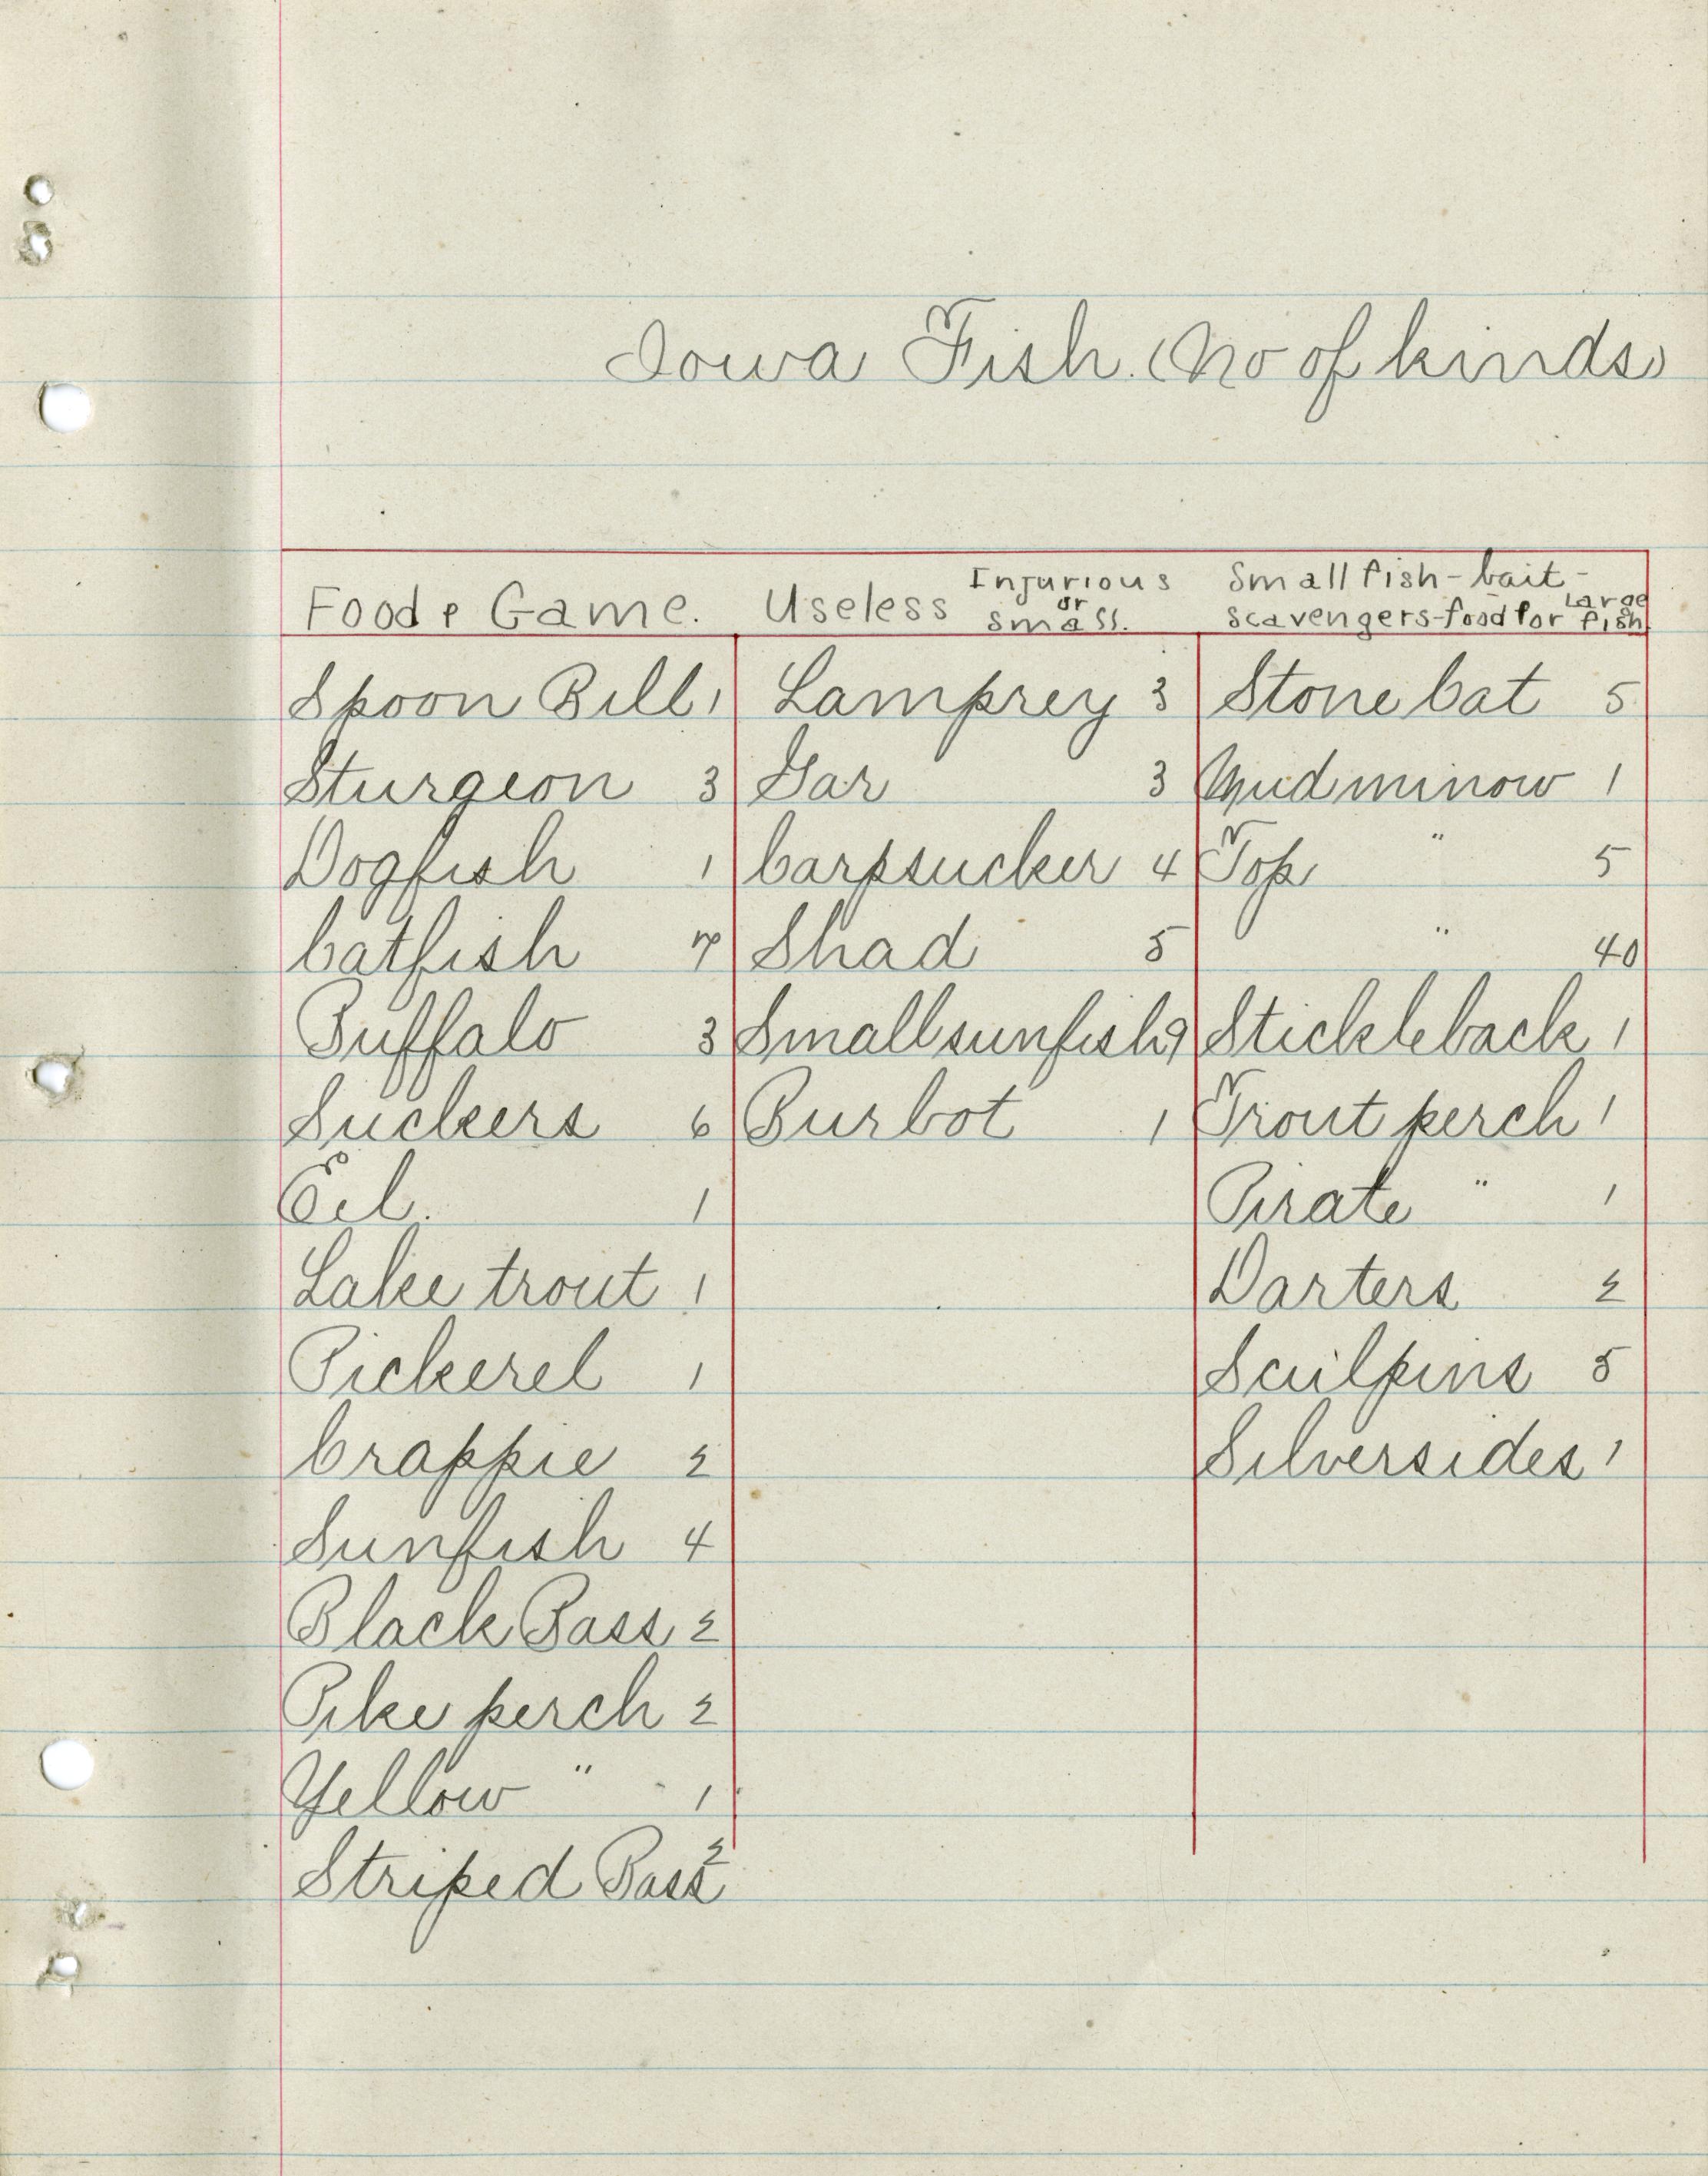 Iowa Fish. (No of kinds)
Food & Game. Useless Injurious or small. Small fish-bait- Scavengers-food for Large fish
Spoon Bill 1 Lamprey 3 Stone Cat 5
Sturgeon 3 Gar 3 Mud minow 1
Dogfish 1 Carpsucker 4 Top " 5
Catfish 7 Shad 5 " 40
Buffalo 3 Small sunfish 9 Stickleback 1
Suckers 6 Burbot 1 Trout perch 1
Eel. 1 Pirate " 1
Lake trout 1 Darters 2
Pickerel 1 Sculpins 5
Crappie 2 Silversides 1
Sunfish 4
Black Bass 2
Pike perch 2
Yellow " 1
Striped Bass 2